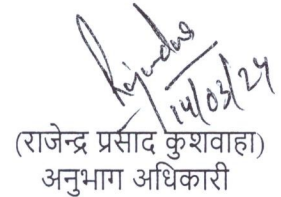 Rajendra
14/03/24
(राजेन्द्र प्रसाद कुशवाहा)
अनुभाग अधिकारी